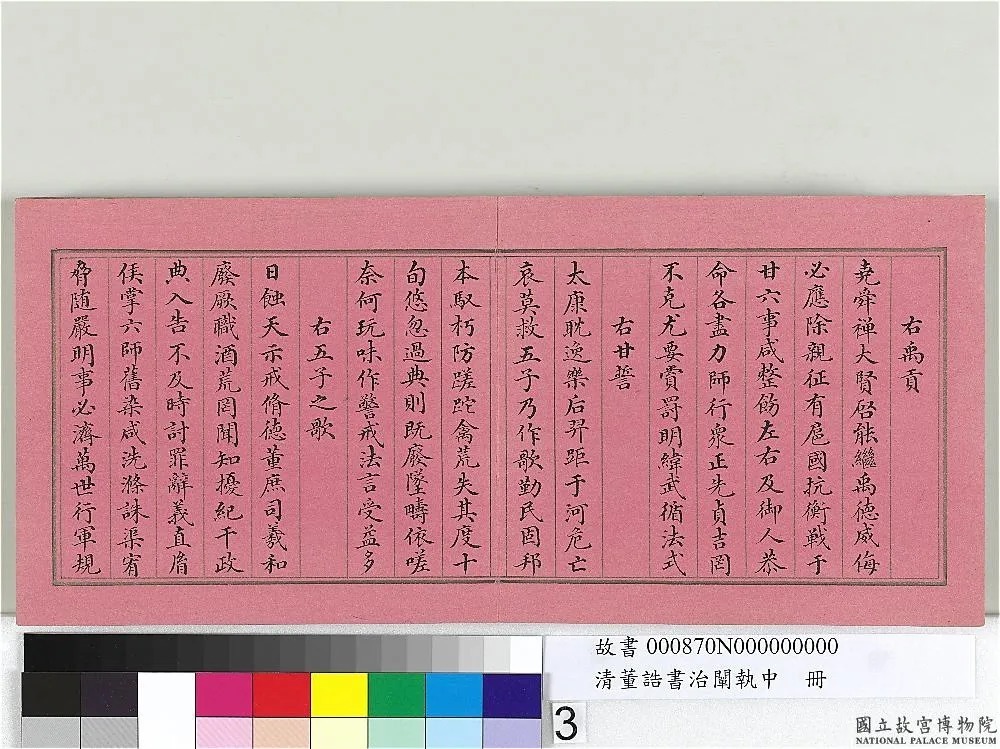 右禹貢
堯舜禅大賢啓能繼禹德威侮
必應除親征有扈國抗衡戰于
甘六事咸整飭左右及御人恭
命各盡力師行衆正先貞吉罔
不克尤要賞罰明緯武循法式
右甘誓
太康耽逸樂后羿距于河危亡
哀莫救五子乃作歌勤民固邦
本馭朽防蹉跎禽荒失其度十
旬悠忽過典則既廢墜疇依嗟
奈何玩味作警戒法言受益多
右五子之歌
日蝕天示戒脩德董庶司羲和
廢厥職酒荒罔聞知擾紀干政
典入告不及時討罪辭義直胤
侯掌六師舊染咸洗滌誅渠宥
脅随嚴明事必濟萬世行軍規
故書 000870N000000000
清董誥書治闡執中 冊
3
國立故宮博物院
NATIONAL PALACE MUSEUM